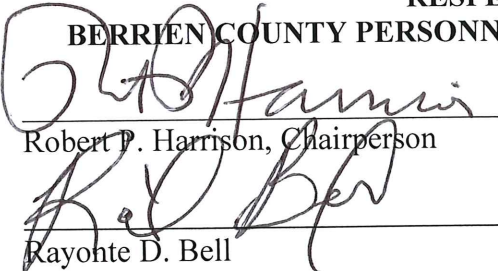 BERRIEN COUNTY PERSONN
Robert P. Harrison, Chairperson
Rayonte D. Bell